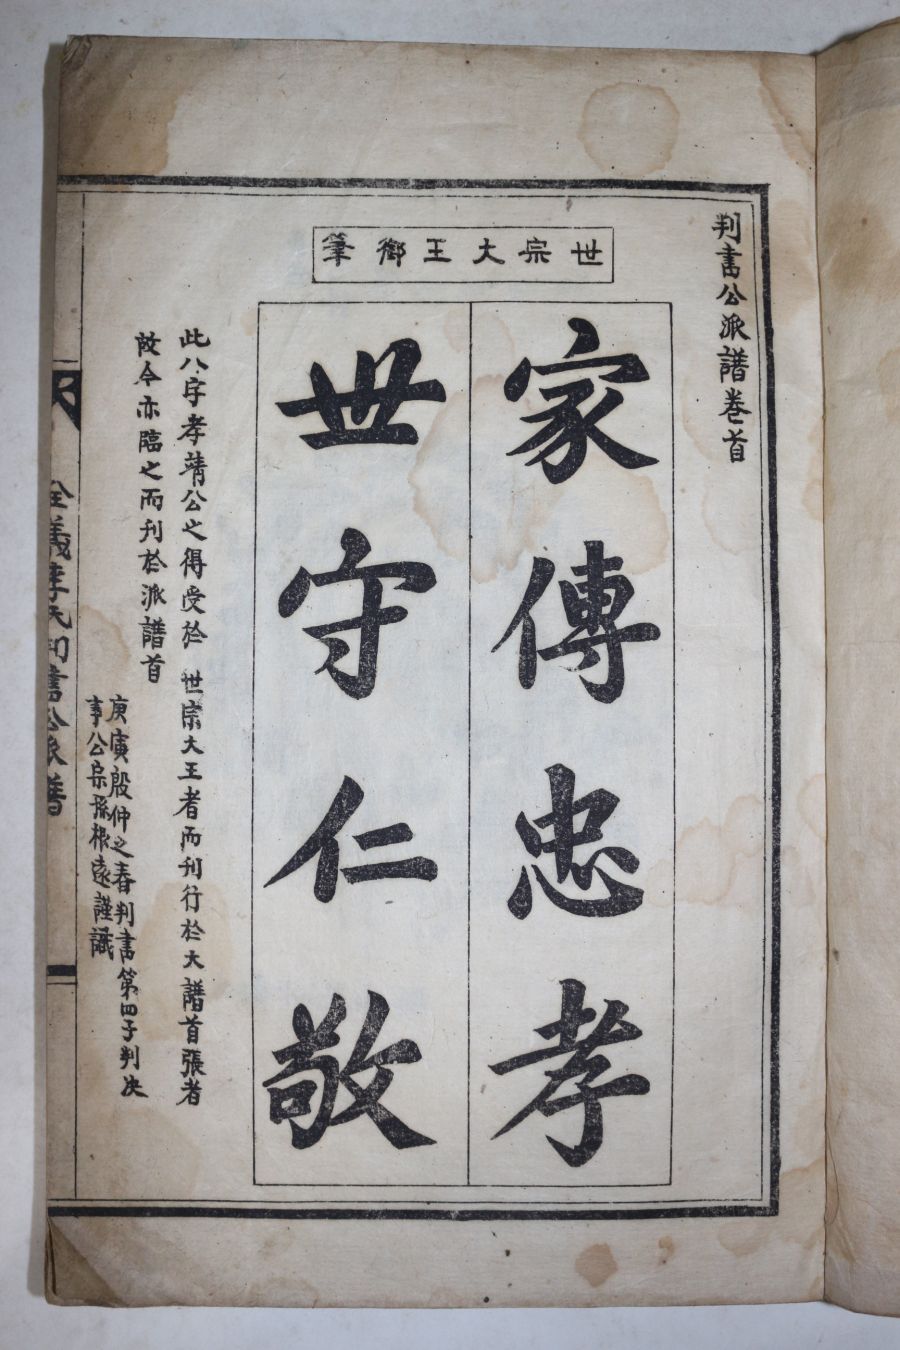 判書公派譜卷首
世宗大王御筆
家傳忠孝
世守仁敬
此八字孝靖公之得受於 世宗大王者而刊行於大譜首張者
故今亦臨之而刊於派譜首
庚寅殷仲之春判書第四子判決
事公宗孫根遠謹識
全義李氏判書公派譜